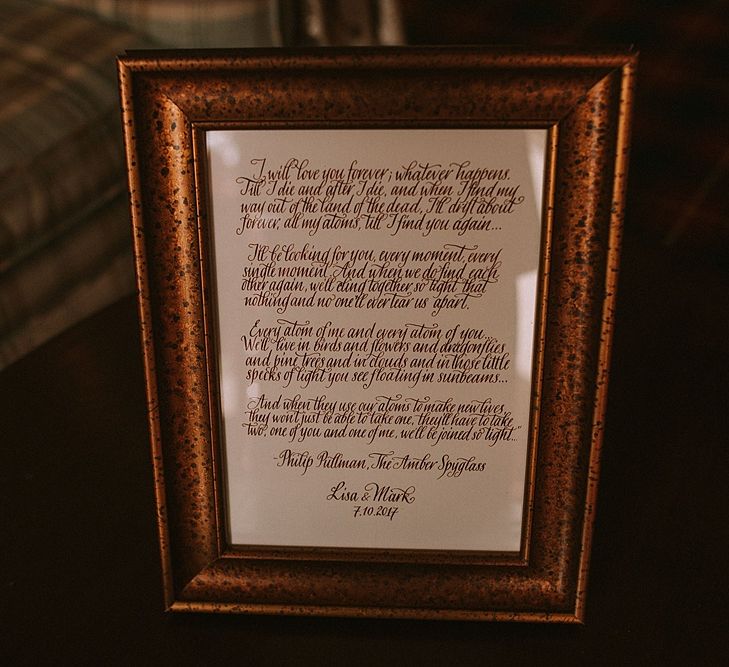 I will love you forever; whatever happens.
Till I die and after I die, and when I find my
way out of the land of the dead, I'll drift about
forever, all my atoms, till I find you again...
I'll be looking for you, every moment, every
single moment. And when we do find each
other again, we'll cling together so tight that
nothing and no one'll ever tear us apart.
Every atom of me and every atom of you...
We'll live in birds and flowers and dragonflies
and pine trees and in clouds and in those little
specks of light you see floating in sunbeams...
And when they use our atoms to make new lives,
they won't just be able to take one, they'll have to take
two, one of you and one of me, we'll be joined so tight..."
-Philip Pullman, The Amber Spyglass
Lisa & Mark
7.10.2017